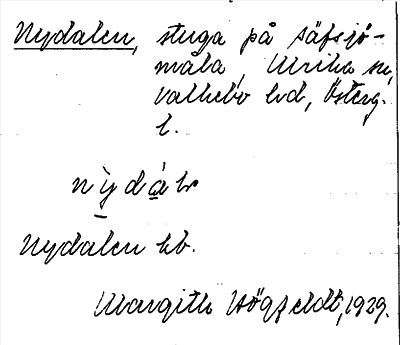 Nydalen, stuga på Säfsjö-
måla, Ulrika sn,
Valkebo hd, Österg.
l.
Nydalen kb.
Margith Högfeldt, 1929.